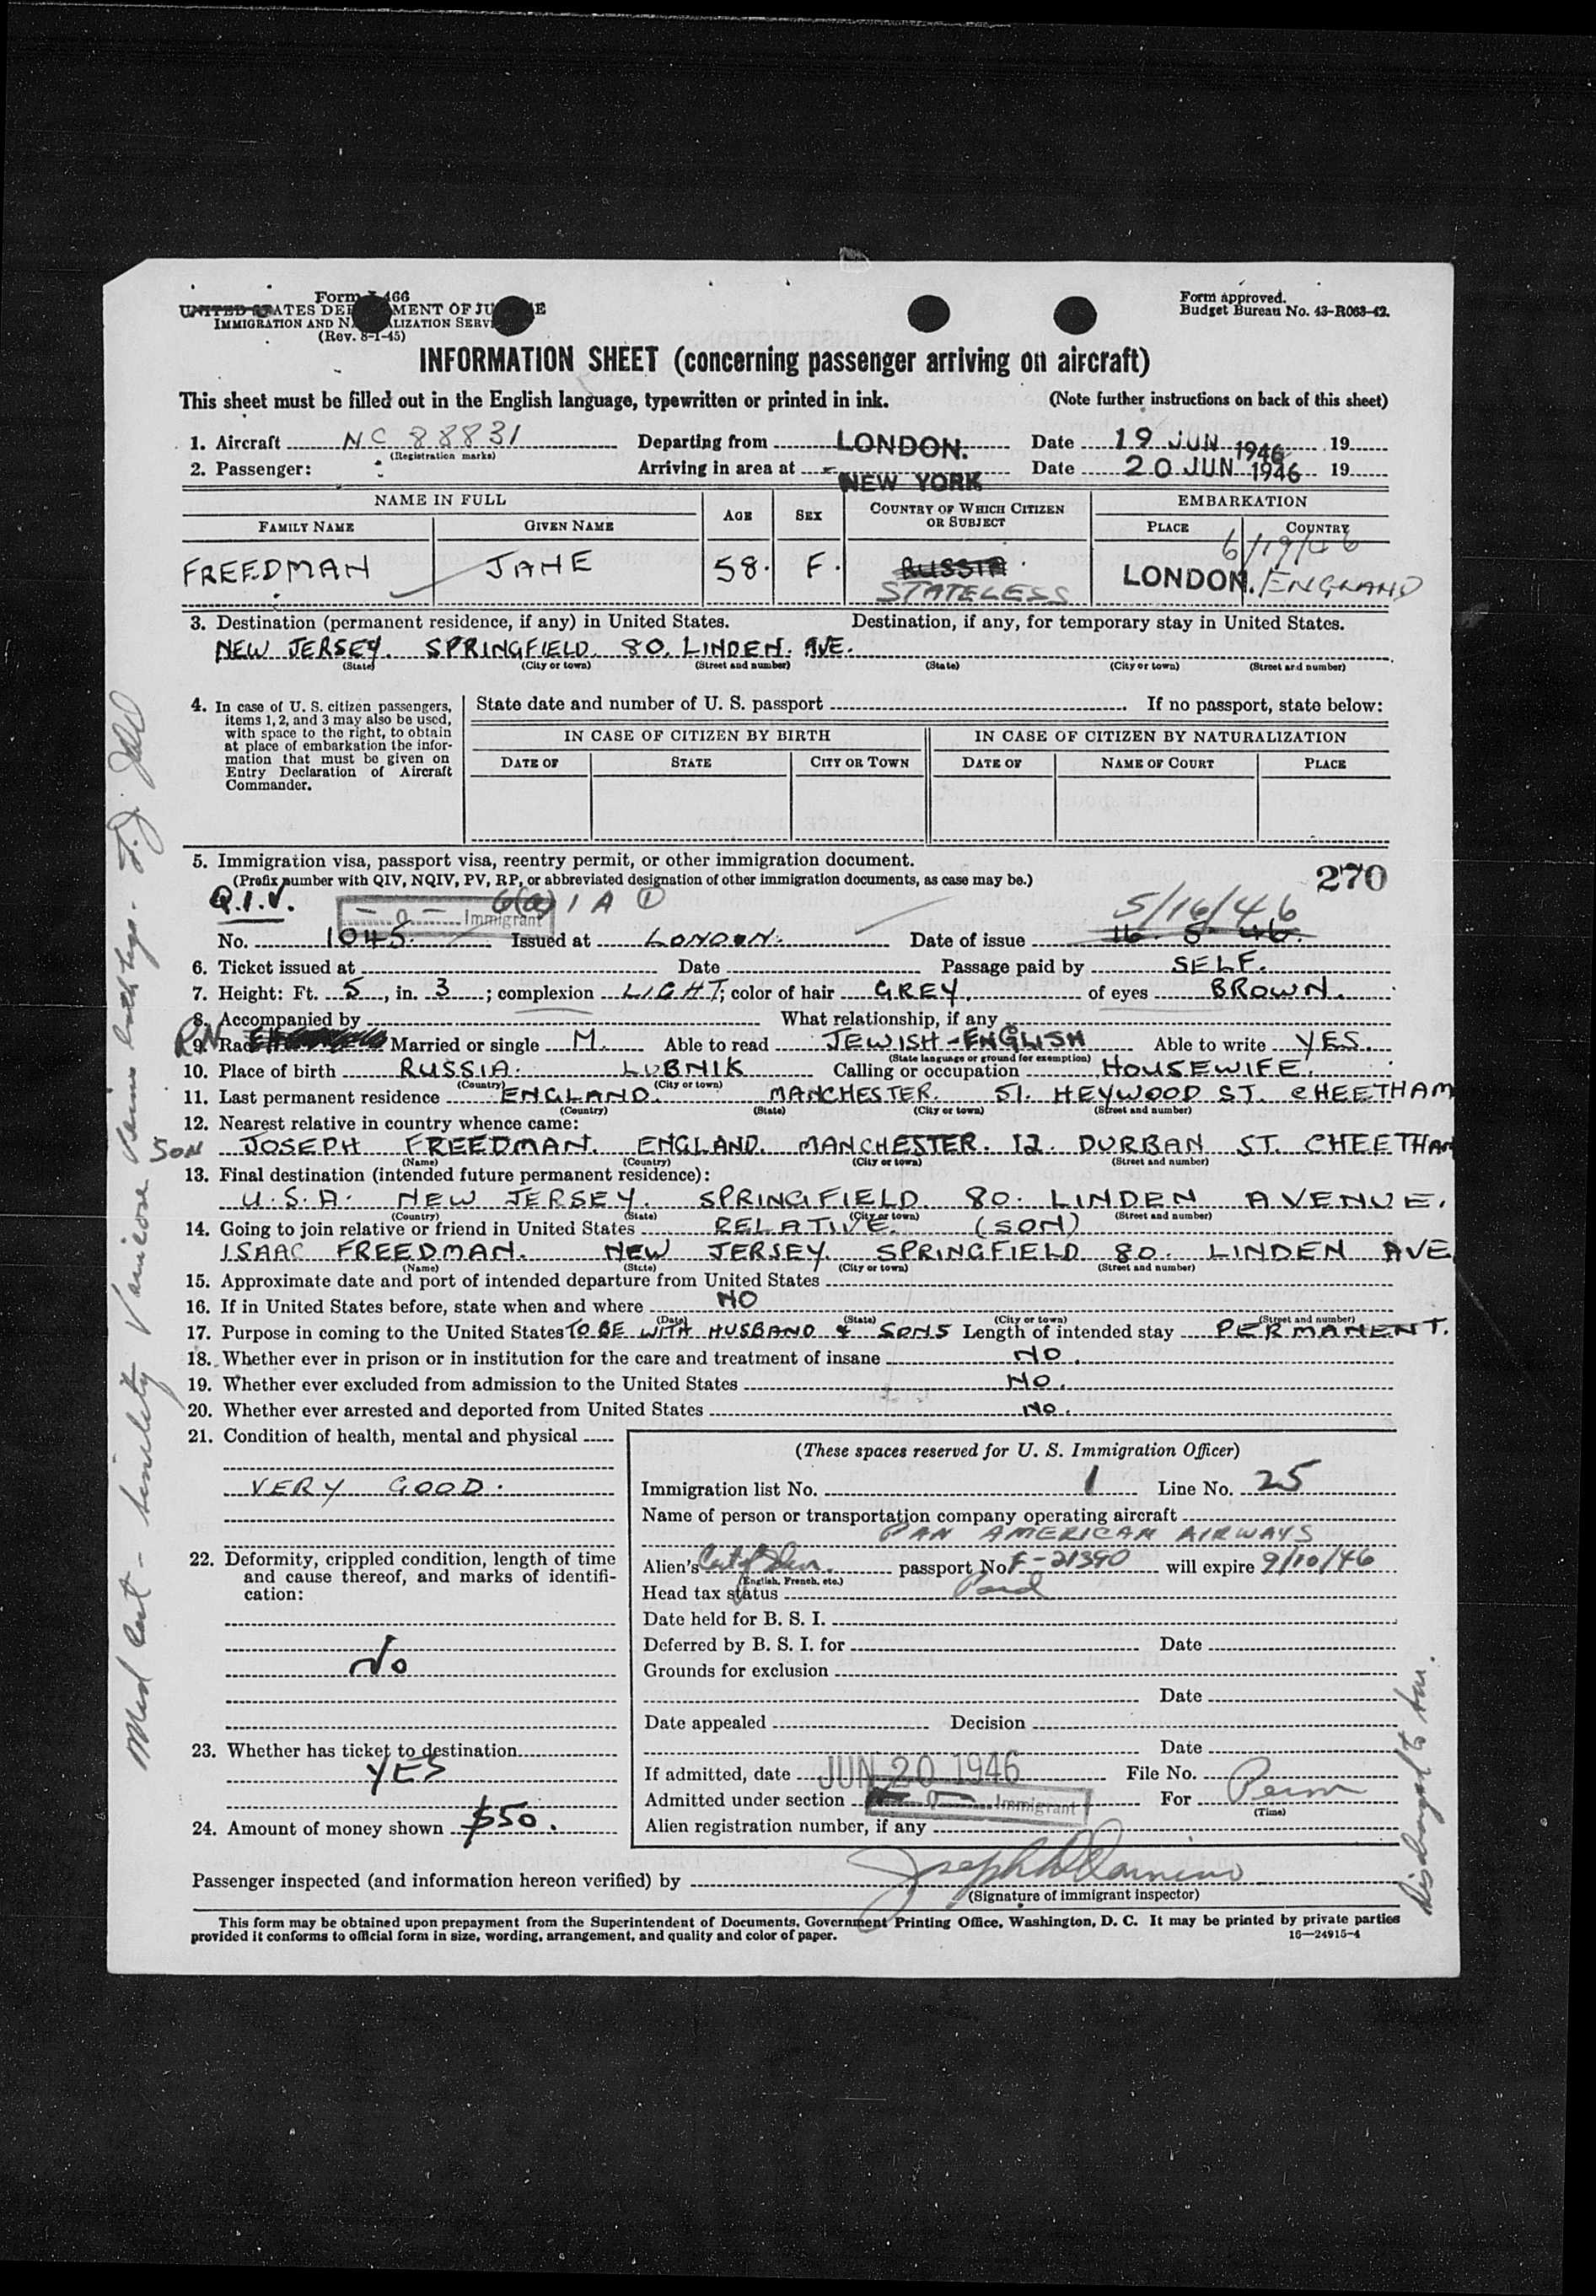 Form I-466
UNITED STATES DEPARTMENT OF JUSTICE
IMMIGRATION AND NATURALIZATION SERVICE
(Rev. 8-1-45)
Form approved.
Budget Bureau No. 43-R063-42.
INFORMATION SHEET (concerning passenger arriving on aircraft)
This sheet must be filled out in the English language, typewritten or printed in ink. (Note further instructions on back of this sheet)
1. Aircraft NC 88831 Departing from LONDON. Date 19 JUN 1946 19
(Registration marks)
2. Passenger: Arriving in area at NEW YORK Date 20 JUN 1946 19
NAME IN FULL AGE SEX COUNTRY OF WHICH CITIZEN OR SUBJECT EMBARKATION
FAMILY NAME GIVEN NAME PLACE COUNTRY
6/19/46
FREEDMAN JANE 58. F. RUSSIA. LONDON. ENGLAND
STATELESS
3. Destination (permanent residence, if any) in United States. Destination, if any, for temporary stay in United States.
NEW JERSEY. SPRINGFIELD. 80. LINDEN. AVE.
(State) (City or town) (Street and number) (State) (City or town) (Street and number)
4. In case of U. S. citizen passengers, items 1, 2, and 3 may also be used, with space to the right, to obtain at place of embarkation the information that must be given on Entry Declaration of Aircraft Commander.
State date and number of U. S. passport If no passport, state below:
IN CASE OF CITIZEN BY BIRTH IN CASE OF CITIZEN BY NATURALIZATION
DATE OF STATE CITY OR TOWN DATE OF NAME OF COURT PLACE
5. Immigration visa, passport visa, reentry permit, or other immigration document.
(Prefix number with QIV, NQIV, PV, RP, or abbreviated designation of other immigration documents, as case may be.) 270
Q.I.V. 6(a) 1 A ① 5/16/46
Immigrant
No. 1045. Issued at LONDON. Date of issue 16. 5. 46.
6. Ticket issued at Date Passage paid by SELF.
7. Height: Ft. 5, in. 3; complexion LIGHT; color of hair GREY. of eyes BROWN.
8. Accompanied by What relationship, if any
RN 9. Race Married or single M. Able to read JEWISH-ENGLISH Able to write YES.
(State language or ground for exemption)
10. Place of birth RUSSIA. LUBNIK Calling or occupation HOUSEWIFE.
(Country) (City or town)
11. Last permanent residence ENGLAND. MANCHESTER. 51. HEYWOOD ST. CHEETHAM
(Country) (State) (City or town) (Street and number)
12. Nearest relative in country whence came:
SON JOSEPH FREEDMAN. ENGLAND. MANCHESTER. 12. DURBAN ST. CHEETHAM
(Name) (Country) (City or town) (Street and number)
13. Final destination (intended future permanent residence):
U.S.A. NEW JERSEY. SPRINGFIELD. 80. LINDEN AVENUE.
(Country) (State) (City or town) (Street and number)
14. Going to join relative or friend in United States RELATIVE. (SON)
ISAAC FREEDMAN. NEW JERSEY. SPRINGFIELD 80. LINDEN AVE
(Name) (State) (City or town) (Street and number)
15. Approximate date and port of intended departure from United States
16. If in United States before, state when and where NO
(Date) (State) (City or town) (Street and number)
17. Purpose in coming to the United States TO BE WITH HUSBAND & SONS Length of intended stay PERMANENT.
18. Whether ever in prison or in institution for the care and treatment of insane NO.
19. Whether ever excluded from admission to the United States NO.
20. Whether ever arrested and deported from United States NO.
21. Condition of health, mental and physical
VERY GOOD.
22. Deformity, crippled condition, length of time and cause thereof, and marks of identification:
No
23. Whether has ticket to destination
YES
24. Amount of money shown $50.
(These spaces reserved for U. S. Immigration Officer)
Immigration list No. 1 Line No. 25
Name of person or transportation company operating aircraft
PAN AMERICAN AIRWAYS
Alien's Cert of Iden. passport No. F-21390 will expire 9/10/46
(English, French, etc.)
Head tax status Paid
Date held for B. S. I.
Deferred by B. S. I. for Date
Grounds for exclusion
Date
Date appealed Decision
Date
If admitted, date JUN 20 1946 File No.
Admitted under section Immigrant For Perm
(Time)
Alien registration number, if any
Passenger inspected (and information hereon verified) by
(Signature of immigrant inspector)
This form may be obtained upon prepayment from the Superintendent of Documents, Government Printing Office, Washington, D. C. It may be printed by private parties
provided it conforms to official form in size, wording, arrangement, and quality and color of paper. 16—24915-4
Med Cert - Senility Varicose Veins both legs.